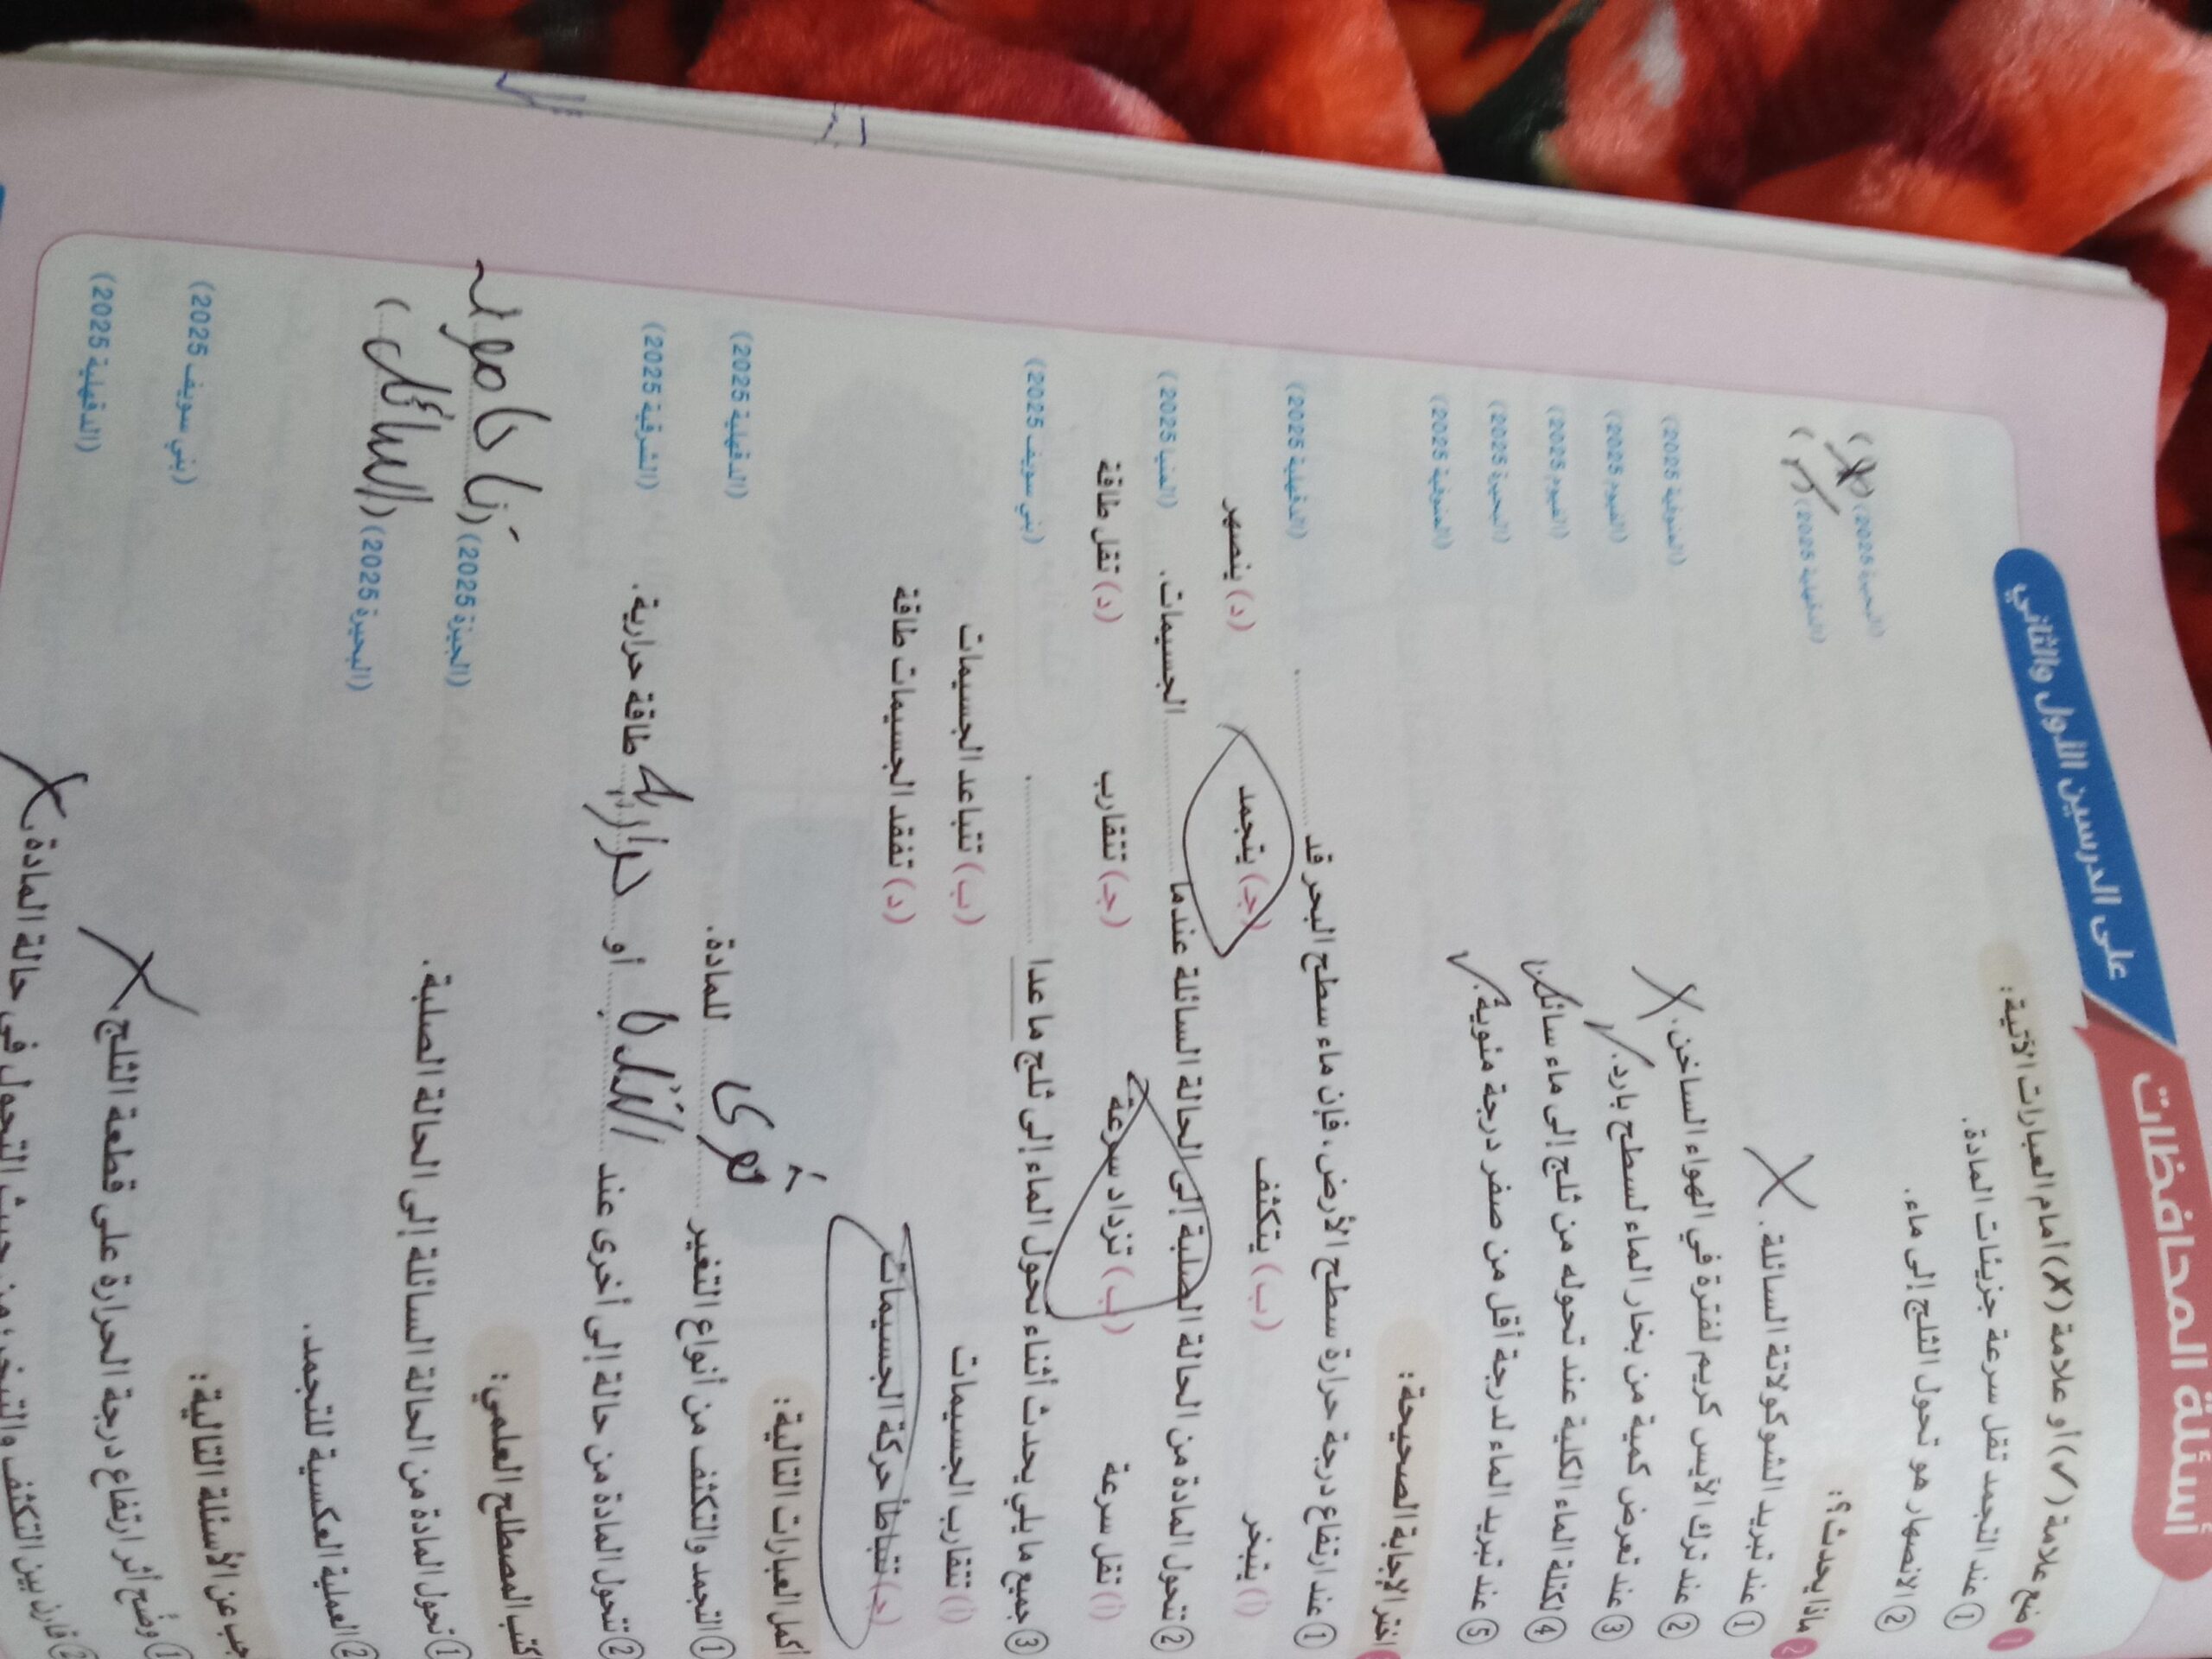 أسئلة المحافظات على الدرسين الأول والثاني
1 ضع علامة (✓) أو علامة (X) أمام العبارات الآتية:
① عند التجمد تقل سرعة جزيئات المادة. (البحيرة 2025) (X)
② الانصهار هو تحول الثلج إلى ماء. (الدقهلية 2025) (✓)
2 ماذا يحدث؟:
① عند تبريد الشوكولاتة السائلة. X (المنوفية 2025)
② عند ترك الآيس كريم لفترة في الهواء الساخن. X (الفيوم 2025)
③ عند تعرض كمية من بخار الماء لسطح بارد. ✓ (الفيوم 2025)
④ لكتلة الماء الكلية عند تحوله من ثلج إلى ماء سائل. (البحيرة 2025)
⑤ عند تبريد الماء لدرجة أقل من صفر درجة مئوية. ✓ (المنوفية 2025)
اختر الإجابة الصحيحة:
① عند ارتفاع درجة حرارة سطح الأرض، فإن ماء سطح البحر قد .......... . (الدقهلية 2025)
(أ) يتبخر (ب) يتكثف (جـ) يتجمد (د) ينصهر
② تتحول المادة من الحالة الصلبة إلى الحالة السائلة عندما .......... الجسيمات. (المنيا 2025)
(أ) تقل سرعة (ب) تزداد سرعة (جـ) تتقارب (د) تقل طاقة
③ جميع ما يلي يحدث أثناء تحول الماء إلى ثلج ما عدا .......... . (بني سويف 2025)
(أ) تتقارب الجسيمات (ب) تتباعد الجسيمات
(جـ) تتباطأ حركة الجسيمات (د) تفقد الجسيمات طاقة
أكمل العبارات التالية:
① التجمد والتكثف من أنواع التغير .......... للمادة. (الدقهلية 2025)
② تتحول المادة من حالة إلى أخرى عند .......... أو حرارية طاقة حرارية. (الشرقية 2025)
اكتب المصطلح العلمي:
① تحول المادة من الحالة السائلة إلى الحالة الصلبة. (الجيزة 2025)
② العملية العكسية للتجمد. (البحيرة 2025) (السائل)
أجب عن الأسئلة التالية:
① وضح أثر ارتفاع درجة الحرارة على قطعة الثلج. X (بني سويف 2025)
② قارن بين التكثف والتبخر من حيث التحول في حالة المادة. X (الدقهلية 2025)